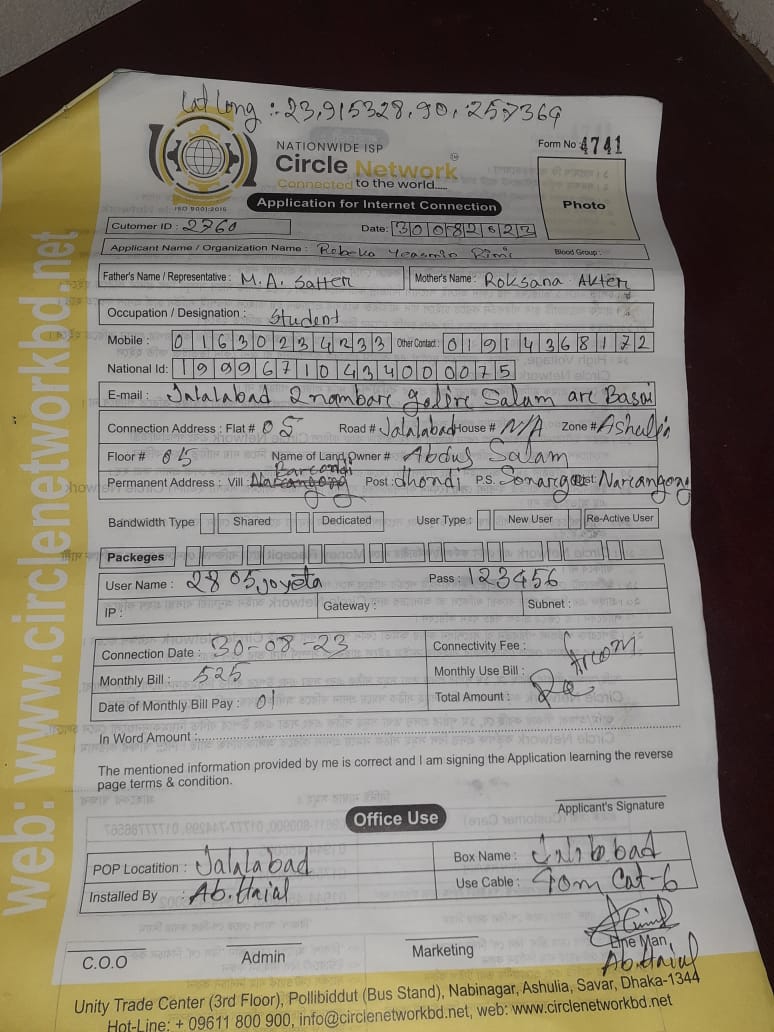 Lat Long : 23,915328,90,257369
NATIONWIDE ISP
Form No 4741
Circle Network
Connected to the world.....
ISO 9001:2015
Application for Internet Connection
Photo
Cutomer ID : 2760 Date: 30082022
Applicant Name / Organization Name : Yeasmin Rimi Blood Group :
Father's Name / Representative : M.A. Satter Mother's Name : Roksana Akter
Occupation / Designation : Student
Mobile : 01630234233 Other Contact : 01914368172
National Id: 19996710434000075
E-mail : Jalalabad 2nambare golire Salam are Basai
Connection Address : Flat # 05 Road # Jalalabad House # N/A Zone # Ashulia
Floor # 05 Name of Land Owner # Abdus Salam
Permanent Address : Vill : Post : dhondi P.S. Dist: Narcangong
Bandwidth Type Shared Dedicated User Type : New User Re-Active User
Packeges
User Name : 2805joyeta Pass : 123456
IP : Gateway : Subnet :
Connection Date : 30-08-23 Connectivity Fee :
Monthly Bill : 525 Monthly Use Bill :
Date of Monthly Bill Pay : 01 Total Amount :
In Word Amount :
The mentioned information provided by me is correct and I am signing the Application learning the reverse
page terms & condition.
Applicant's Signature
Office Use
POP Locatition : Jalalabad Box Name :
Installed By : Use Cable : Cat-6
C.O.O Admin Marketing Line Man
Unity Trade Center (3rd Floor), Pollibiddut (Bus Stand), Nabinagar, Ashulia, Savar, Dhaka-1344
Hot-Line: + 09611 800 900, info@circlenetworkbd.net, web: www.circlenetworkbd.net
web: www.circlenetworkbd.net